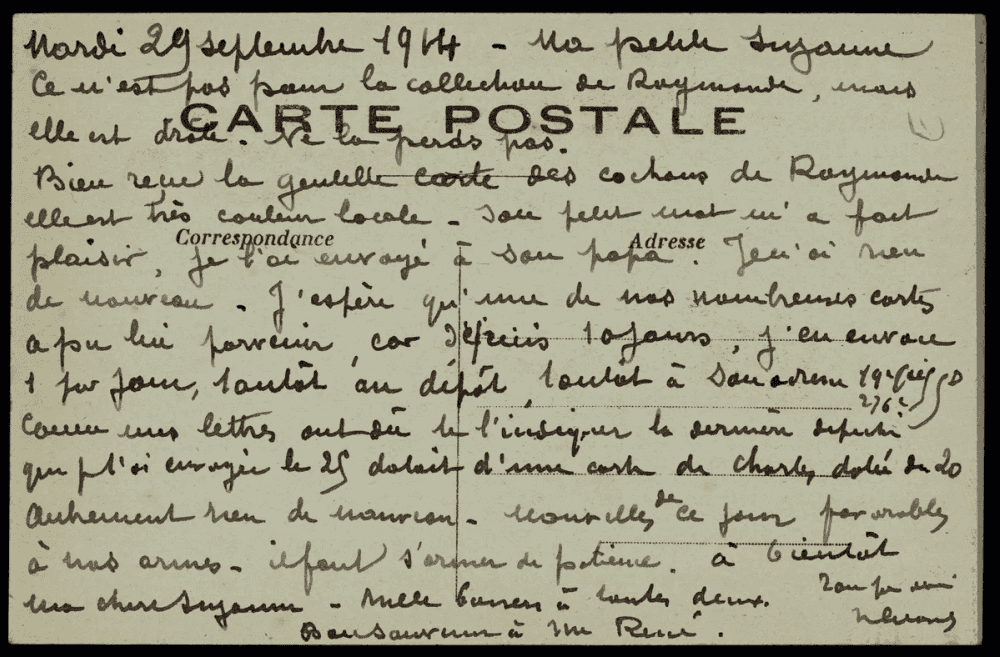 Mardi 29 septembre 1914 - Ma petite Suzanne
Ce n'est pas pour la collection de Raymonde, mais
CARTE POSTALE
elle est drôle. Ne la perds pas.
Bien reçu la gentille carte des cochons de Raymonde
elle est très couleur locale - Son petit mot m'a fait
Correspondance Adresse
plaisir, je l'ai envoyé à son papa. Je n'ai rien
de nouveau - J'espère qu'une de nos nombreuses cartes
a pu lui parvenir, car depuis 10 jours, j'en envoie
1 par jour, tantôt au dépôt, tantôt à son adresse 19e
276e
Comme mes lettres ont dû te l'indiquer la dernière
que je t'ai envoyée le 25 datait d'une carte de Charles, datée du 20
Autrement rien de nouveau - Nouvelles de ce jour favorables
à nos armes - il faut s'armer de patience. à bientôt
ma chère Suzanne - Mille baisers à toutes deux. Ton
Bon souvenir à Mme René.